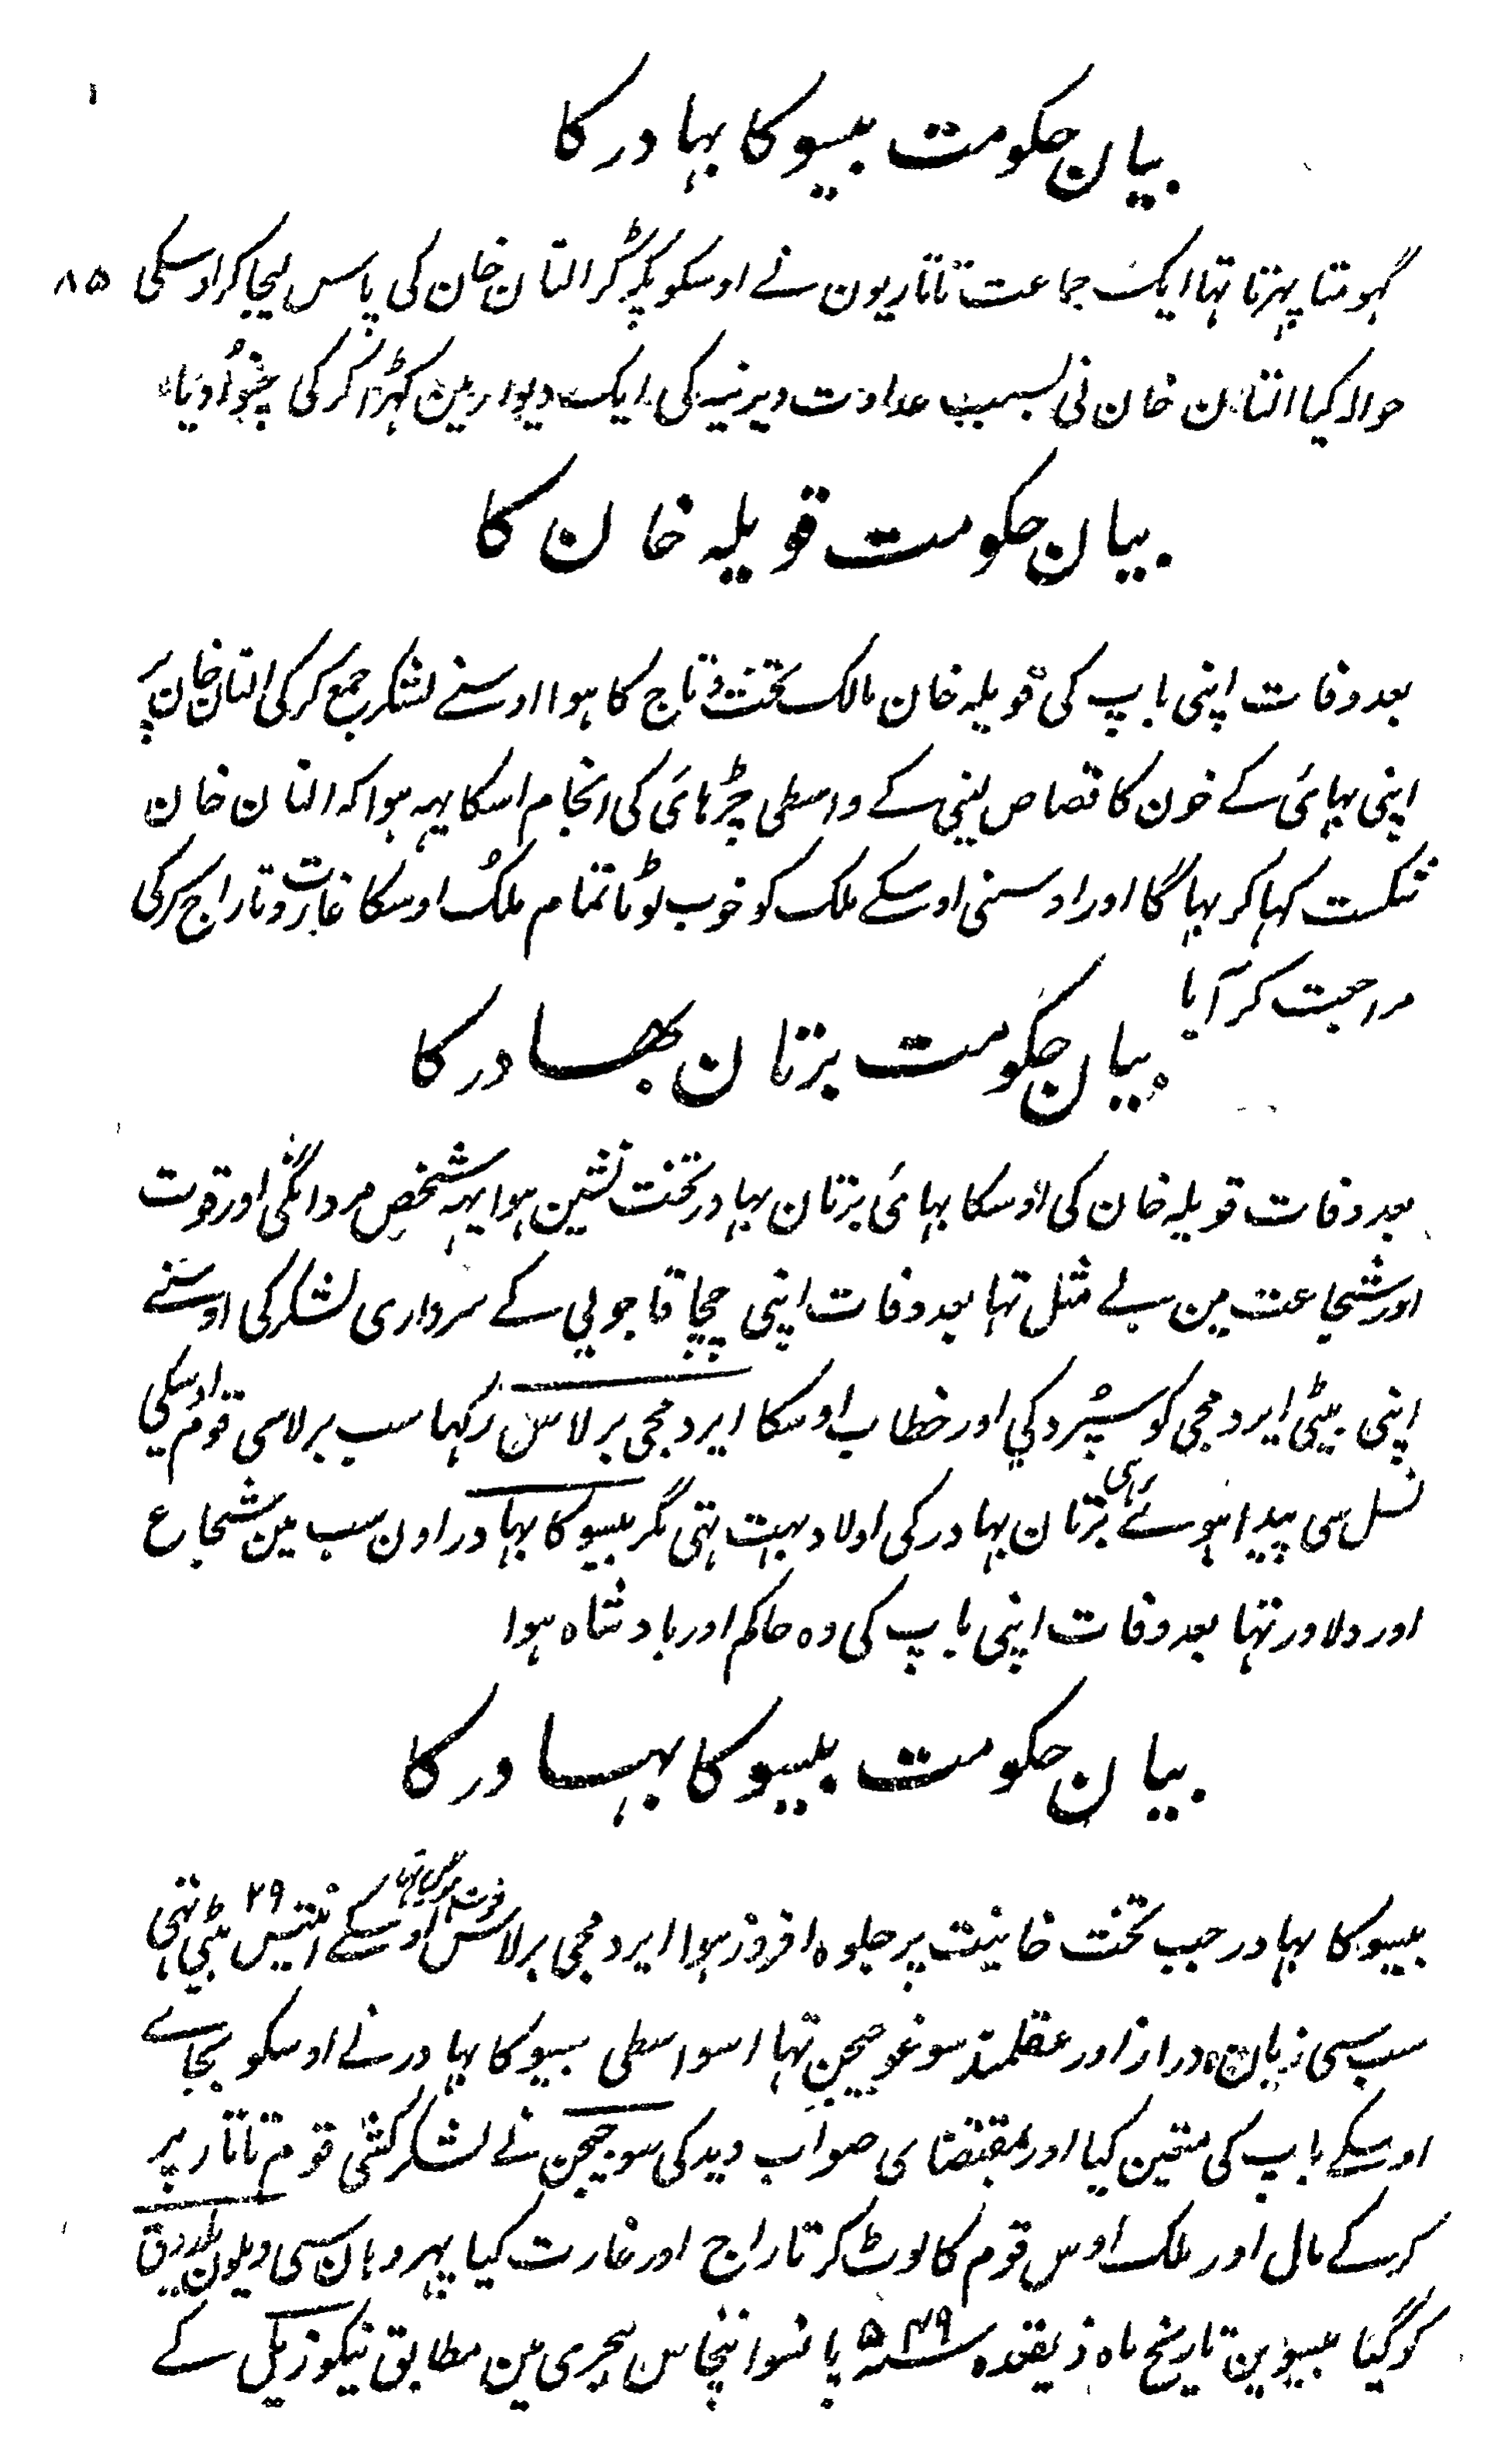 بیان حکومت بیسوکا بہادر کا
گہومتا پہرتا تہا ایک جماعت تاتاریون نے اوسکو پکڑ کر التان خان کی پاس لیجا کر اوسکی ۸۵
حوالہ کیا التان خان نی بسبب عداوت دیرینہ کی ایک دیوار مین کہڑا کر کی چنوا دیا
بیان حکومت قویلہ خان کا
بعد وفات اپنی باپ کی قویلہ خان مالک تخت و تاج کا ہوا اوسنے لشکر جمع کر کی التان خان پر
اپنی بہائی کے خون کا قصاص لینی کے واسطی چڑہائی کی انجام اسکا یہہ ہوا کہ التان خان
شکست کہا کر بہاگا اور اوسنی اوسکے ملک کو خوب لوٹا تمام ملک اوسکا غارت و تاراج کر کی
مراجعت کر آیا
بیان حکومت برتان بھادر کا
بعد وفات قویلہ خان کی اوسکا بہائی برتان بہادر تخت نشین ہوا یہہ شخص مردانگی اور قوت
اور شجاعت مین بے مثل تہا بعد وفات اپنی چچا قاجولی کے سرداری لشکر کی اوسنے
اپنی بیٹی ایردمجی کو سپرد کی اور خطاب اوسکا ایردمجی برلاس رکہا سب برلاسی قوم اوسکی
نسل سی پیدا ہوئے ہی برتان بہادر کی اولاد بہت تہی مگر بیسوکا بہادر اون سب مین شجاع
اور دلاور تہا بعد وفات اپنی باپ کی وہ حاکم اور بادشاہ ہوا
بیان حکومت بیسوکا بہادر کا
بیسوکا بہادر جب تخت خانیت پر جلوہ افروز ہوا ایردمجی برلاس فوت ہو گیا تہا اوسکے انتیس ۲۹ بیٹی تہی
سب سی زبان دراز اور عقلمند سوغوجیجن تہا اسواسطی بیسوکا بہادر نے اوسکو بجاے
اوسکے باپ کی متعین کیا اور بمقتضای صواب دید کی سوجیجن نے لشکر کشی قوم تاتار پر
کر کے مال اور ملک اوس قوم کا لوٹ کر تاراج اور غارت کیا پہر وہان سی دیلون یلدوق
کو گیا بیسوین تاریخ ماہ ذیقعدہ سنہ ۵۴۹ پانسو انچاس ہجری مین مطابق تنکوزئیل کے